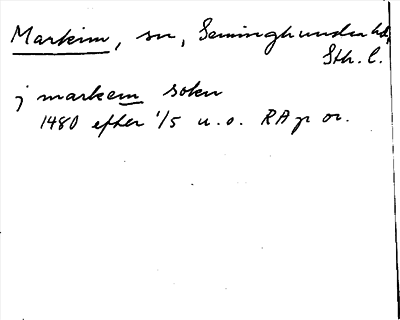 Markim, sn, Seminghundra hd,
Sth. l.
j markem sokn
1480 efter 1/5 u. o. RAp or.